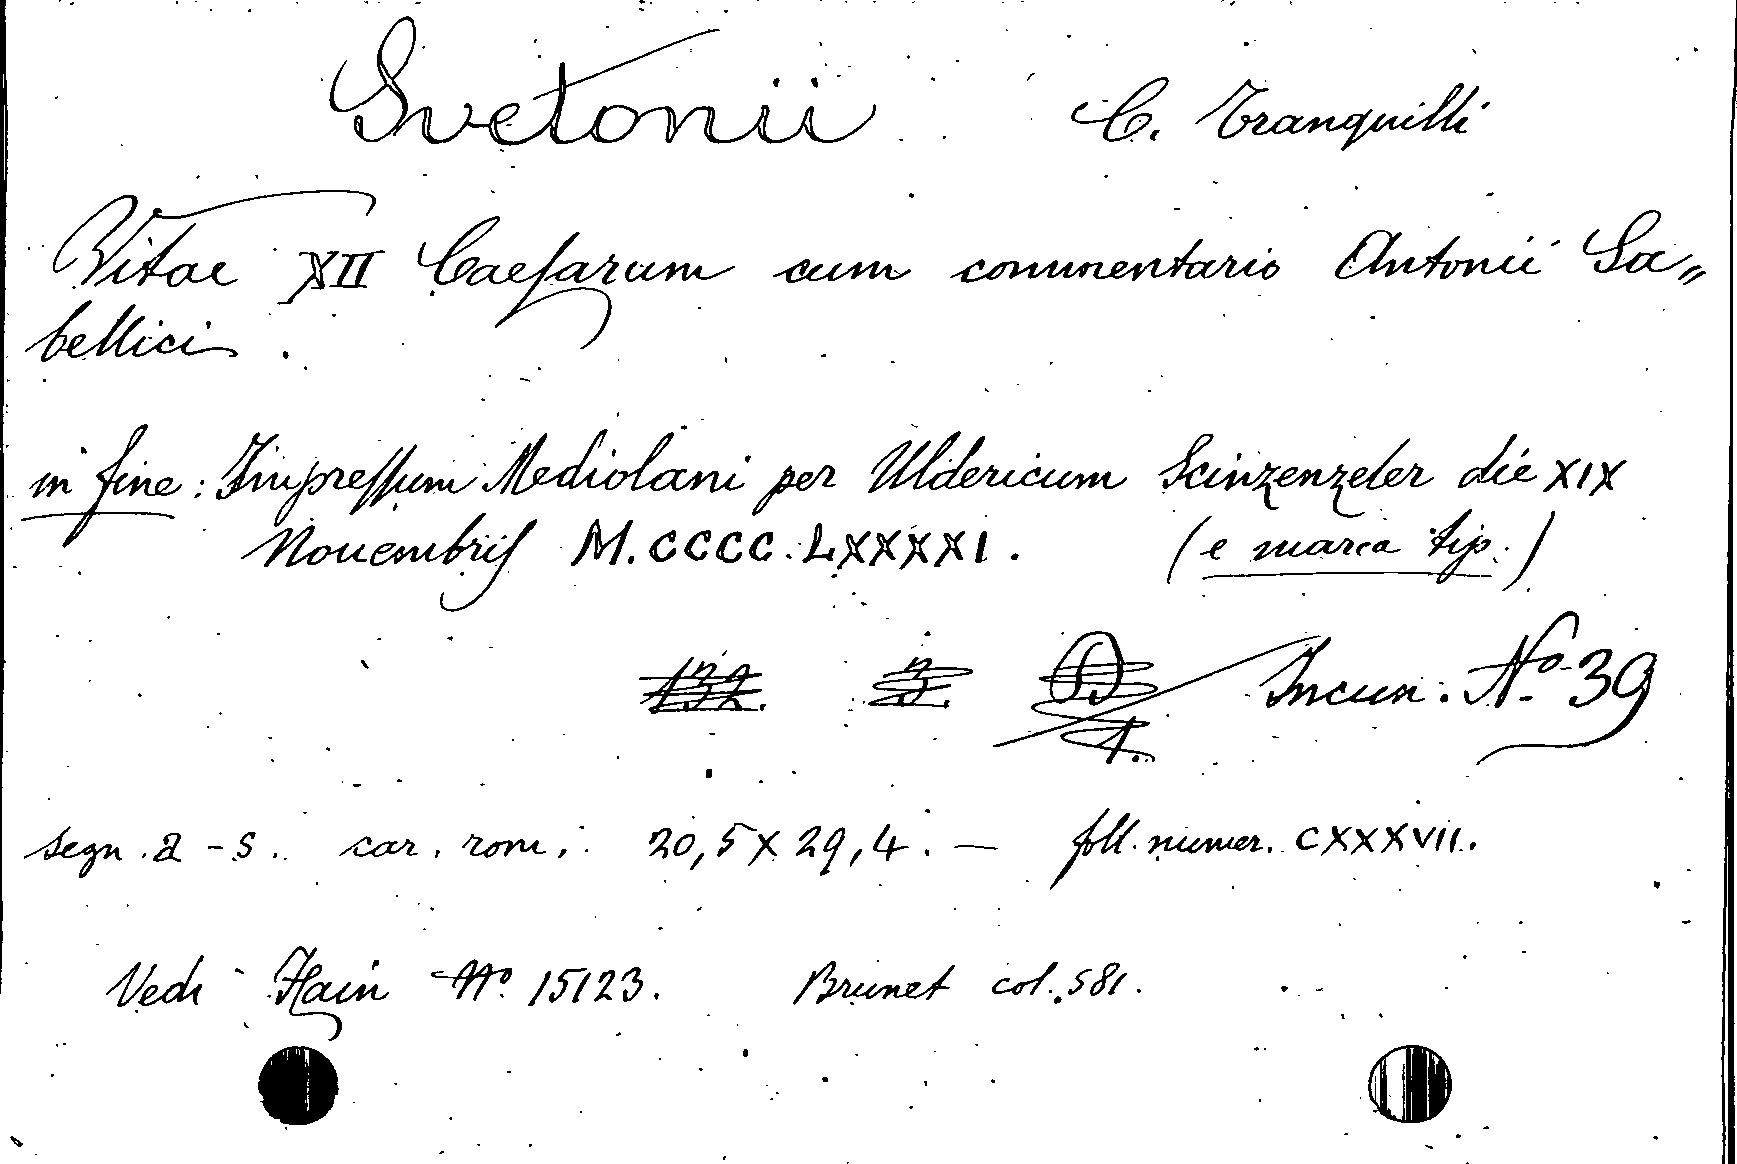 Svetonii C. Tranquilli
Vitae XII Caeſarum cum commentario Antonii Sa„
bellici.
in fine: Impreſſum Mediolani per Uldericum Scinzenzeler die XIX
Nouembriſ M.CCCC.LXXXXI. (e marca tip.)
132. 3. D 1. Incun. No. 39
segn. a - s. car. rom. 20,5 X 29,4. — foll. numer. CXXXVII.
Vedi Hain No. 15123. Brunet col. 581.